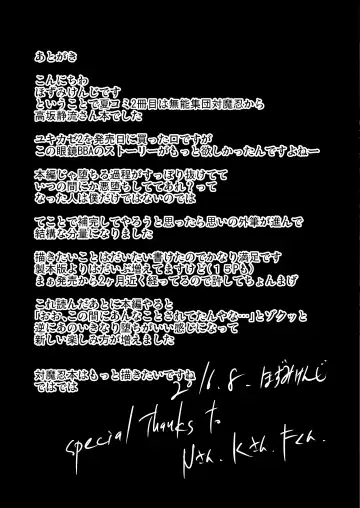 あとがき
こんにちわ
ほずみけんじです
ということで夏コミ2冊目は無能集団対魔忍から
高坂静流さん本でした
ユキカゼ2を発売日に買った口ですが
この眼鏡BBAのストーリーがもっと欲しかったんですよねー
本編じゃ堕ちる過程がすっぽり抜けてて
いつの間にか悪堕ちしててあれ?って
なった人は僕だけではないのでは
てことで補完してやろうと思ったら思いの外筆が進んで
結構な分量になりました
描きたいことはだいたい書けたのでかなり満足です
製本版よりはだいぶ増えてますけど(15Pも)
まぁ発売から2ヶ月近く経ってるので許してちょんまげ
これ読んだあとに本編やると
「おお、この間にあんなことされてたんやな…」とゾクッと
逆にあのいきなり堕ちがいい感じになって
新しい楽しみ方が増えました
対魔忍本はもっと描きたいですね
ではでは
2016.8. ほずみけんじ
special Thanks to
Nさん. Kさん. Fくん.